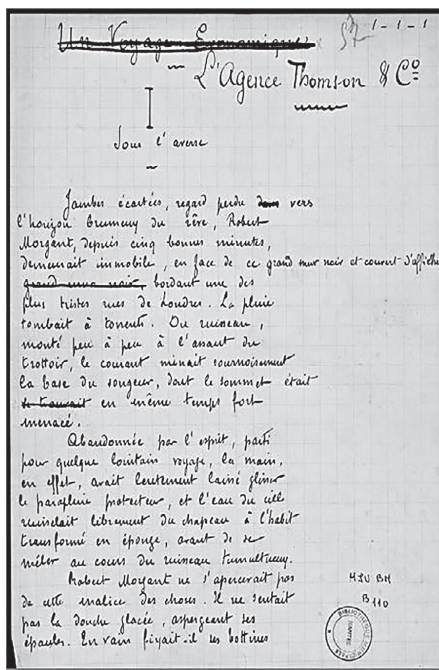 Un Voyage Economique
52 1-1-1
L'Agence Thomson & Co
I
Sous l'averse
Jambes écartées, regard perdu dans vers
l'horizon brumeux du rêve, Robert
Morgant, depuis cinq bonnes minutes,
demeurait immobile, en face de ce grand mur noir et couvert d'affiches
grand mur noir, bordant une des
plus tristes rues de Londres. La pluie
tombait à torrents. Du ruisseau,
monté peu à peu à l'assaut du
trottoir, le courant minait sournoisement
la base du songeur, dont le sommet était
se trouvait en même temps fort
menacé.
Abandonnée par l'esprit, parti
pour quelque lointain voyage, la main,
en effet, avait lentement laissé glisser
le parapluie protecteur, et l'eau du ciel
ruisselait librement du chapeau à l'habit
transformé en éponge, avant de se
mêler au cours du ruisseau tumultueux.
Robert Morgant ne s'apercevait pas
de cette malice des choses. il ne sentait
pas la douche glacée, aspergeant ses
épaules. En vain fixait-il ses bottines
MJV BM
B 110
BIBLIOTHÈQUE